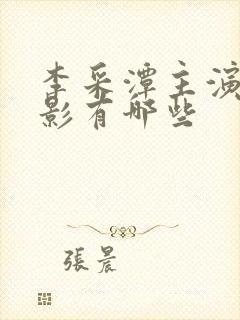 李采潭主演
影有哪些
張晨